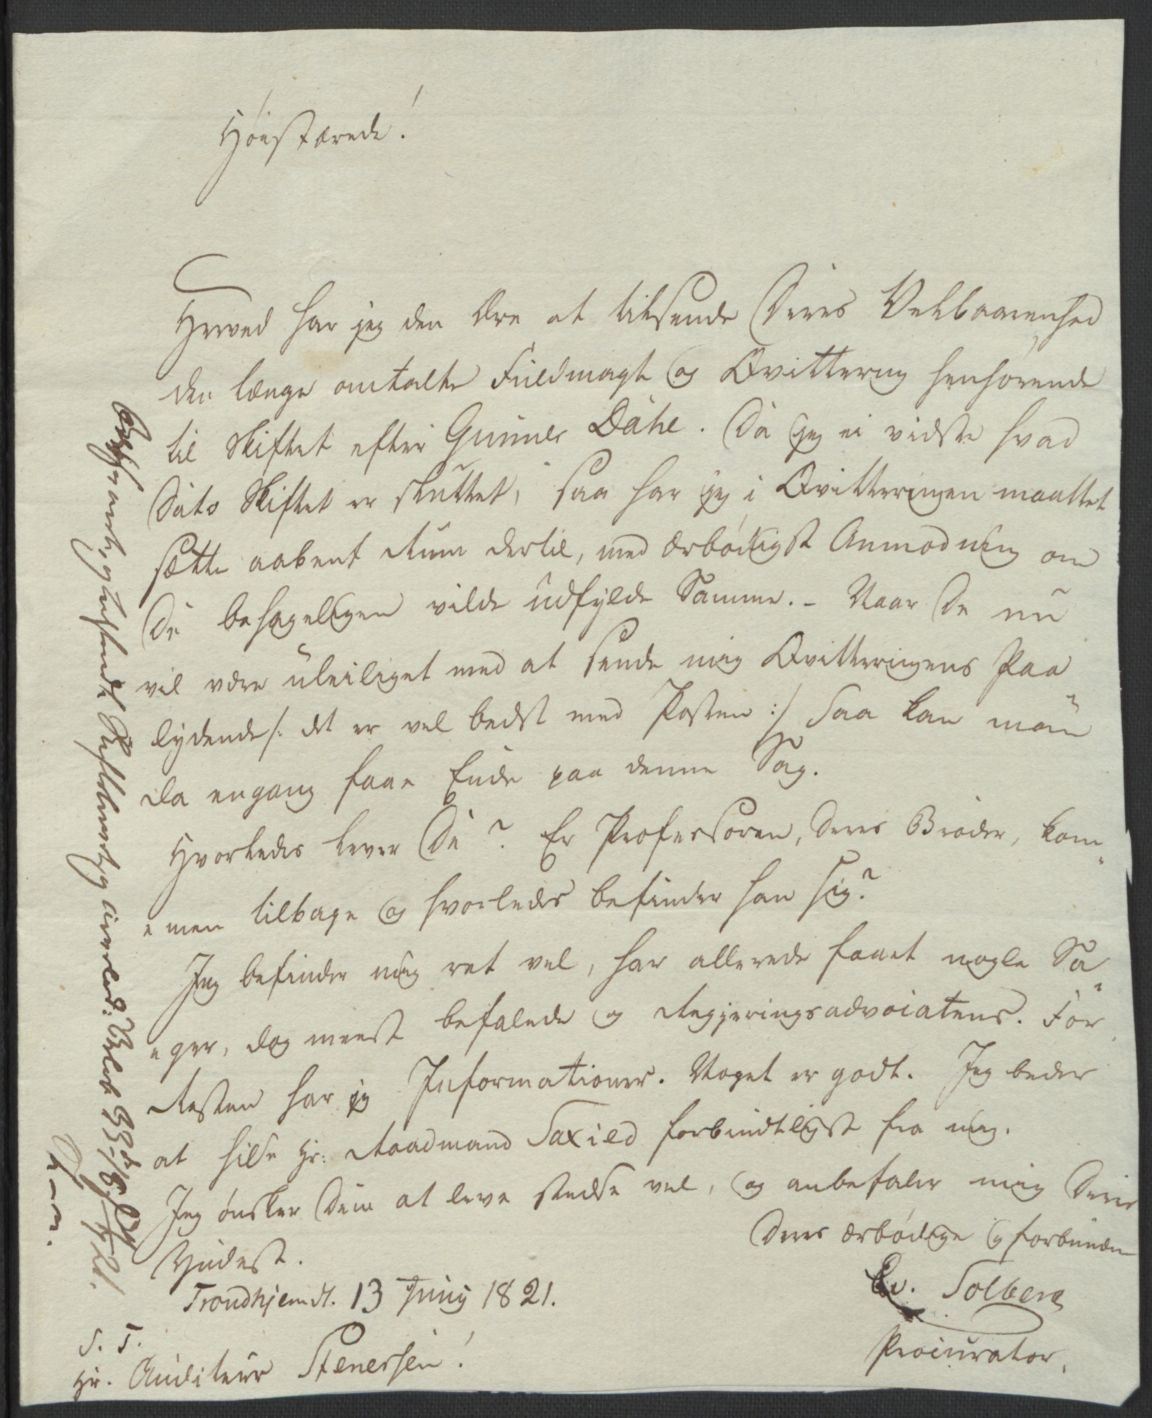 Höistærede!
Herved har jeg den Ære at tilsende Deres Velbaarenhed
den længe omtalte Fuldmagt og Qvittering henhörende
til Skiftet efter Gunner Dähe. Da jeg ei vidste hvad
Dato Skiftet er sluttet, saa har jeg i Qvitteringen maattet
sætte aabent Rum dertil, med ærbödigst Anmodning om
De behageligen vilde udfylde Samme. - Naar De nu
vil være uleiliget med at sende mig Qvitteringens Paa
lydende /: det er vel bedst med Posten :/ saa kan man
da engang faae Ende paa denne Sag.
Hvorledes lever De? Er Professoren, Deres Broder, kom-
men tilbage og hvorledes befinder han sig?
Jeg befinder mig ret vel, har allerede faaet nogle Sa-
ger, dog meest befalede og Regjeringsadvocatens. For
Resten har jeg Informationer. Noget er godt. Jeg beder
at hilse Hr: Raadmand Saxild forbindtligst fra mig.
Jeg ønsker Dem at leve stedse vel, og anbefaler mig Deres
Yndest.
Deres ærbödige og forbundne
Trondhjem d. 13 Juny 1821.
Ev. Solberg
Procurator.
S. T.
Hr. Auditeur Stenersen!